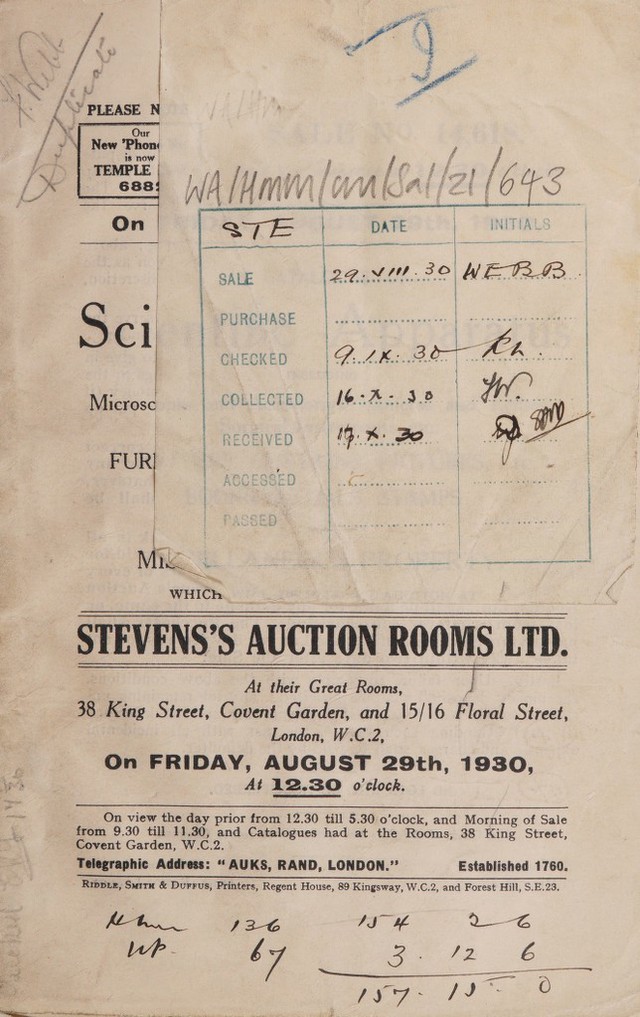 F. Webb
Duplicate
PLEASE N
Our
New 'Phon
is now
TEMPLE
688
WA/Hmm/cm/Sal/21/643
STE DATE INITIALS
SALE 29.VIII.30 WEBB
PURCHASE
CHECKED 9.IX.30
COLLECTED 16.X.30 FW.
RECEIVED 17.X.30
ACCESSED
PASSED
On
Sci
Microsc
FUR
WHICH
STEVENS'S AUCTION ROOMS LTD.
At their Great Rooms,
38 King Street, Covent Garden, and 15/16 Floral Street,
London, W.C.2,
On FRIDAY, AUGUST 29th, 1930,
At 12.30 o'clock.
On view the day prior from 12.30 till 5.30 o'clock, and Morning of Sale
from 9.30 till 11.30, and Catalogues had at the Rooms, 38 King Street,
Covent Garden, W.C.2.
Telegraphic Address: "AUKS, RAND, LONDON." Established 1760.
RIDDLE, SMITH & DUFFUS, Printers, Regent House, 89 Kingsway, W.C.2, and Forest Hill, S.E.23.
136 154 2 6
67 3. 12 6
157. 15. 0